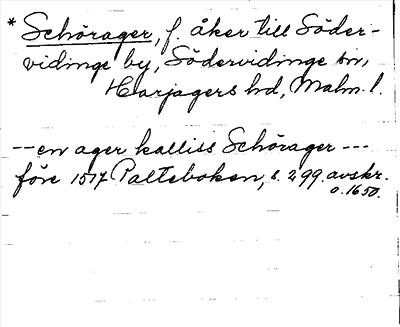 * Schörager, f. åker till Söder-
vidinge by, Södervidinge sn,
Harjagers hd, Malm. l.
--en ager kalliss Schörager ---
före 1517 Palteboken, s. 299. avskr.
o. 1650.